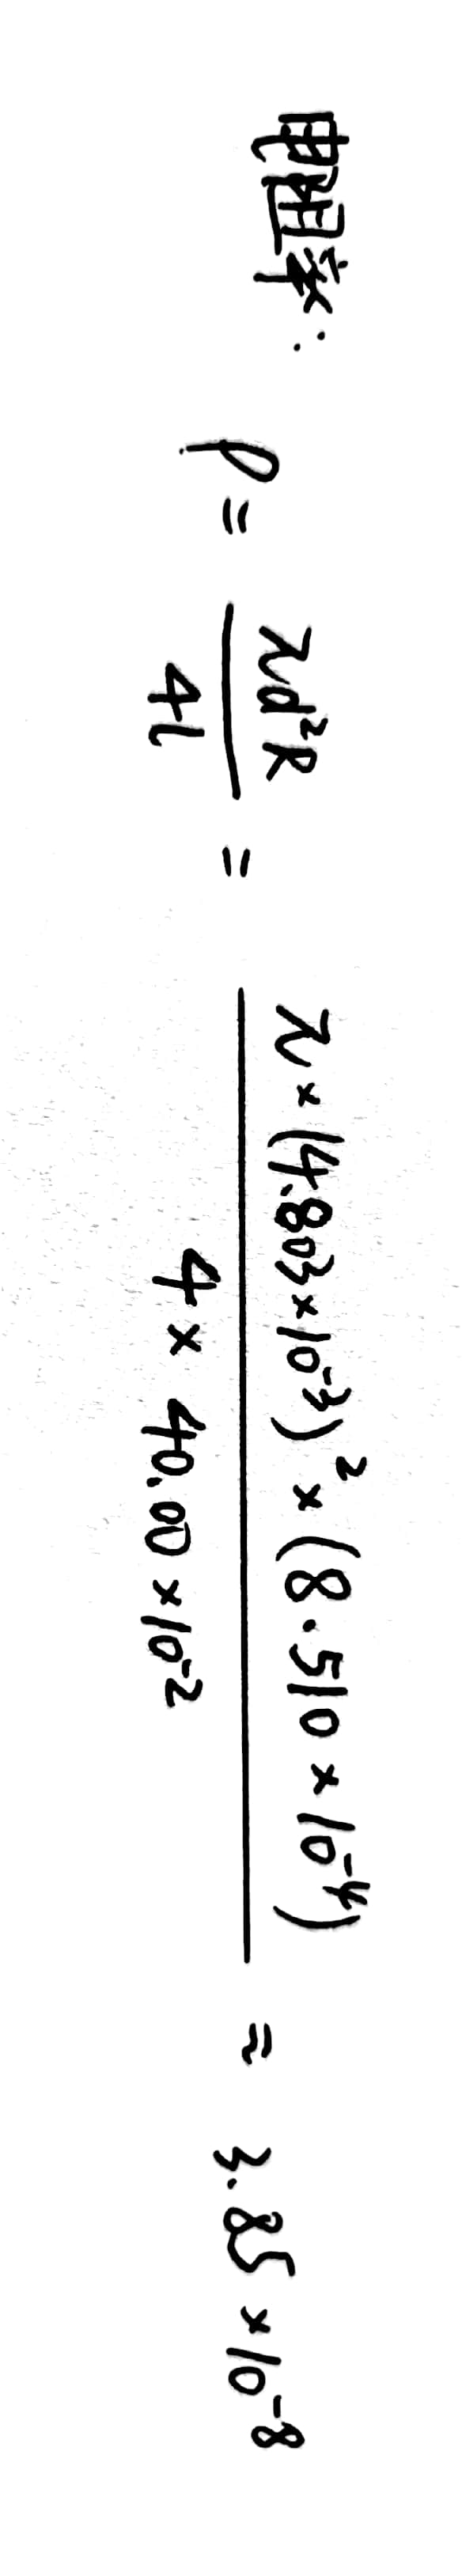 电阻率： ρ = πd²R / 4l = π×(4.803×10⁻³)²×(8.510×10⁻⁴) / 4×40.00×10⁻² ≈ 3.85×10⁻⁸